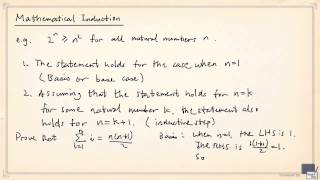 Mathematical Induction
e.g. 2ⁿ ≥ n² for all natural numbers n.
1. The statement holds for the case when n=1
(Basis or base case)
2. Assuming that the statement holds for n=k
for some natural number k, the statement also
holds for n=k+1. (inductive step)
Prove that ∑ᵢ₌₁ⁿ i = n(n+1)/2
Basis: when n=1, the LHS is 1.
The RHS is 1(1+1)/2 = 1.
So